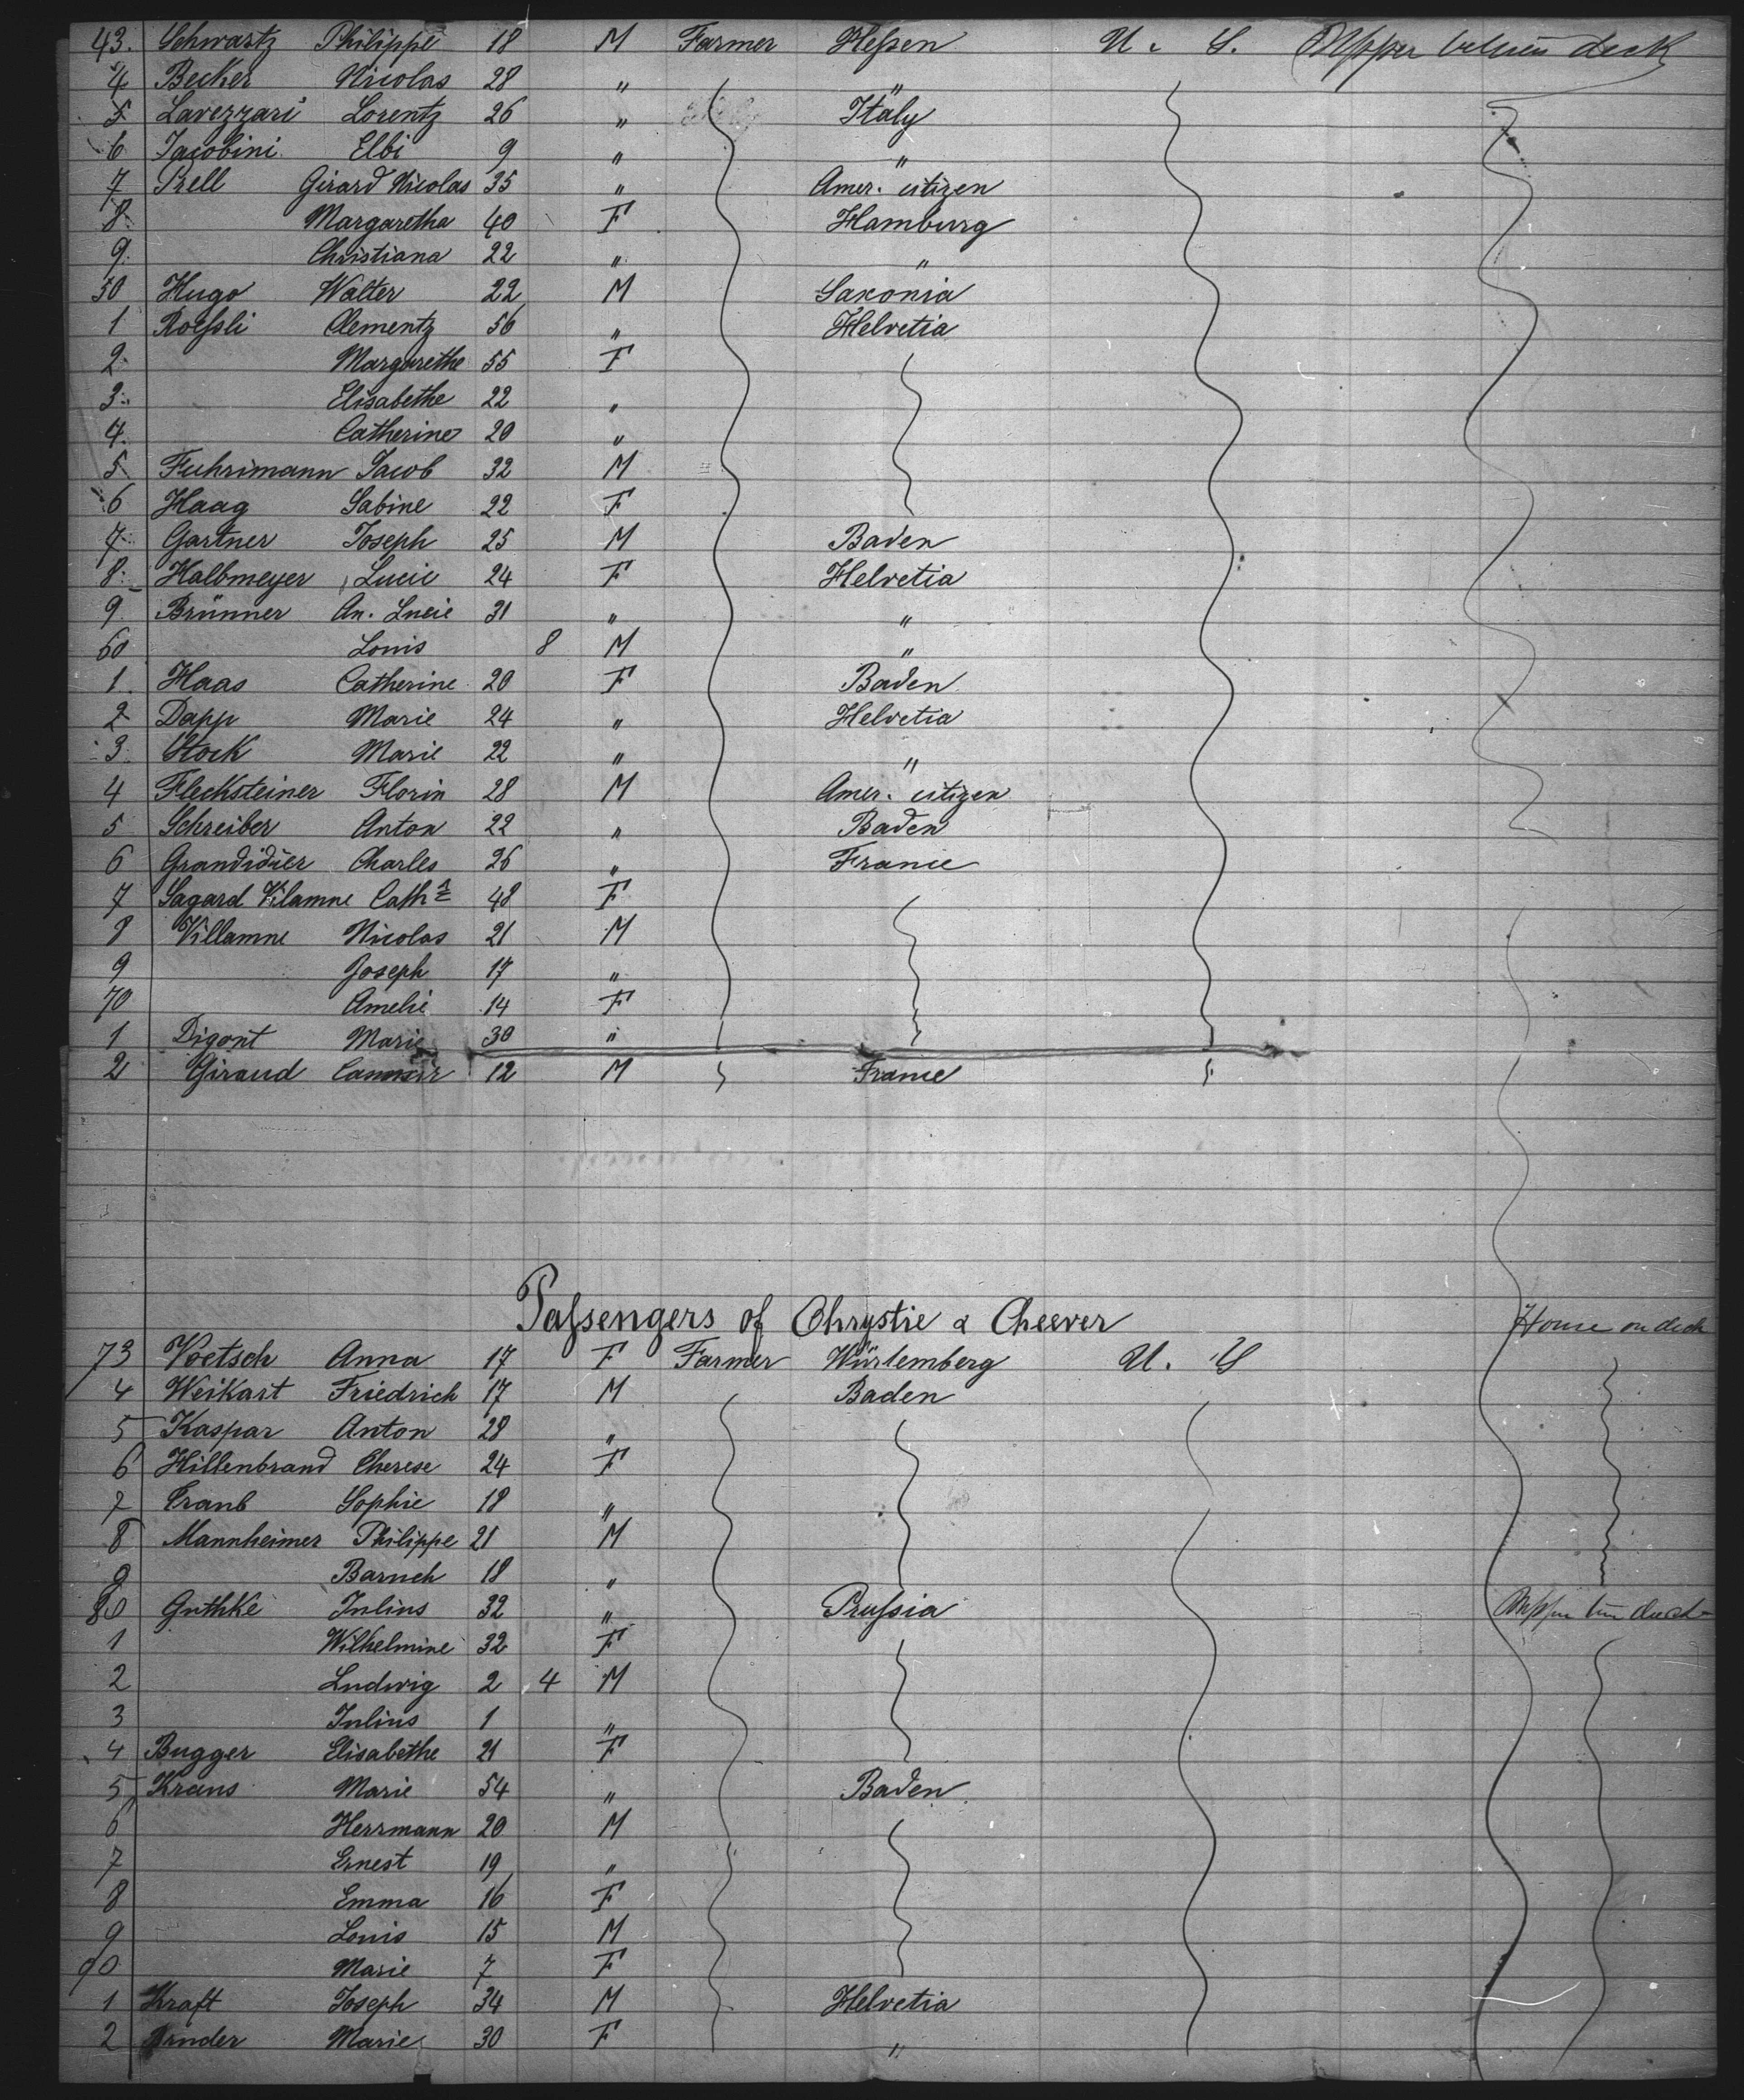 43. Schwartz Philippe 18 M Farmer Hessen U. S. Upper between deck
4 Becker Nicolas 28 " "
5 Lavezzari Lorentz 26 " Italy
6 Jacobini Elbi 9 " "
7 Prell Girard Nicolas 35 " Amer. citizen
8. Margaretha 40 F Hamburg
9. Christiana 22 " "
50 Hugo Walter 22 M Saxonia
1 Roessli Clementz 56 " Helvetia
2. Margarethe 55 F
3. Elisabethe 22 "
4. Catherine 20 "
5 Fuhrimann Jacob 32 M
6 Haag Sabine 22 F
7 Gartner Joseph 25 M Baden
8. Halbmeyer Lucie 24 F Helvetia
9. Brünner An. Lucie 31 " "
60 Louis 8 M "
1. Haas Catherine 20 F Baden
2 Dapp Marie 24 " Helvetia
3. Stock Marie 22 " "
4 Flecksteiner Florin 28 M Amer. citizen
5 Schreiber Anton 22 " Baden
6 Grandidier Charles 26 " France
7 Sagard Vilamne Cathne 48 F
8 Villamne Nicolas 21 M
9 Joseph 17 "
70 Amelie 14 F
1 Digont Marie 30 "
2 Giraud 12 M France
Passengers of Chrystie & Cheever
House on deck
73 Voetsch Anna 17 F Farmer Würtemberg U. S
4 Weikart Friedrich 17 M Baden
5 Kaspar Anton 28 "
6 Hillenbrand Therese 24 F
7 Traub Sophie 18 "
8 Mannheimer Philippe 21 M
9 Baruch 18 "
80 Guthke Julius 32 " Prussia Upper
1 Wilhelmine 32 F
2 Ludwig 2 4 M
3 Julius 1 "
4 Bugger Elisabethe 21 F
5 Kraus Marie 54 " Baden
6 Herrmann 20 M
7 Ernest 19 "
8 Emma 16 F
9 Louis 15 M
90 Marie 7 F
1 Kraft Joseph 34 M Helvetia
2 Marie 30 F "